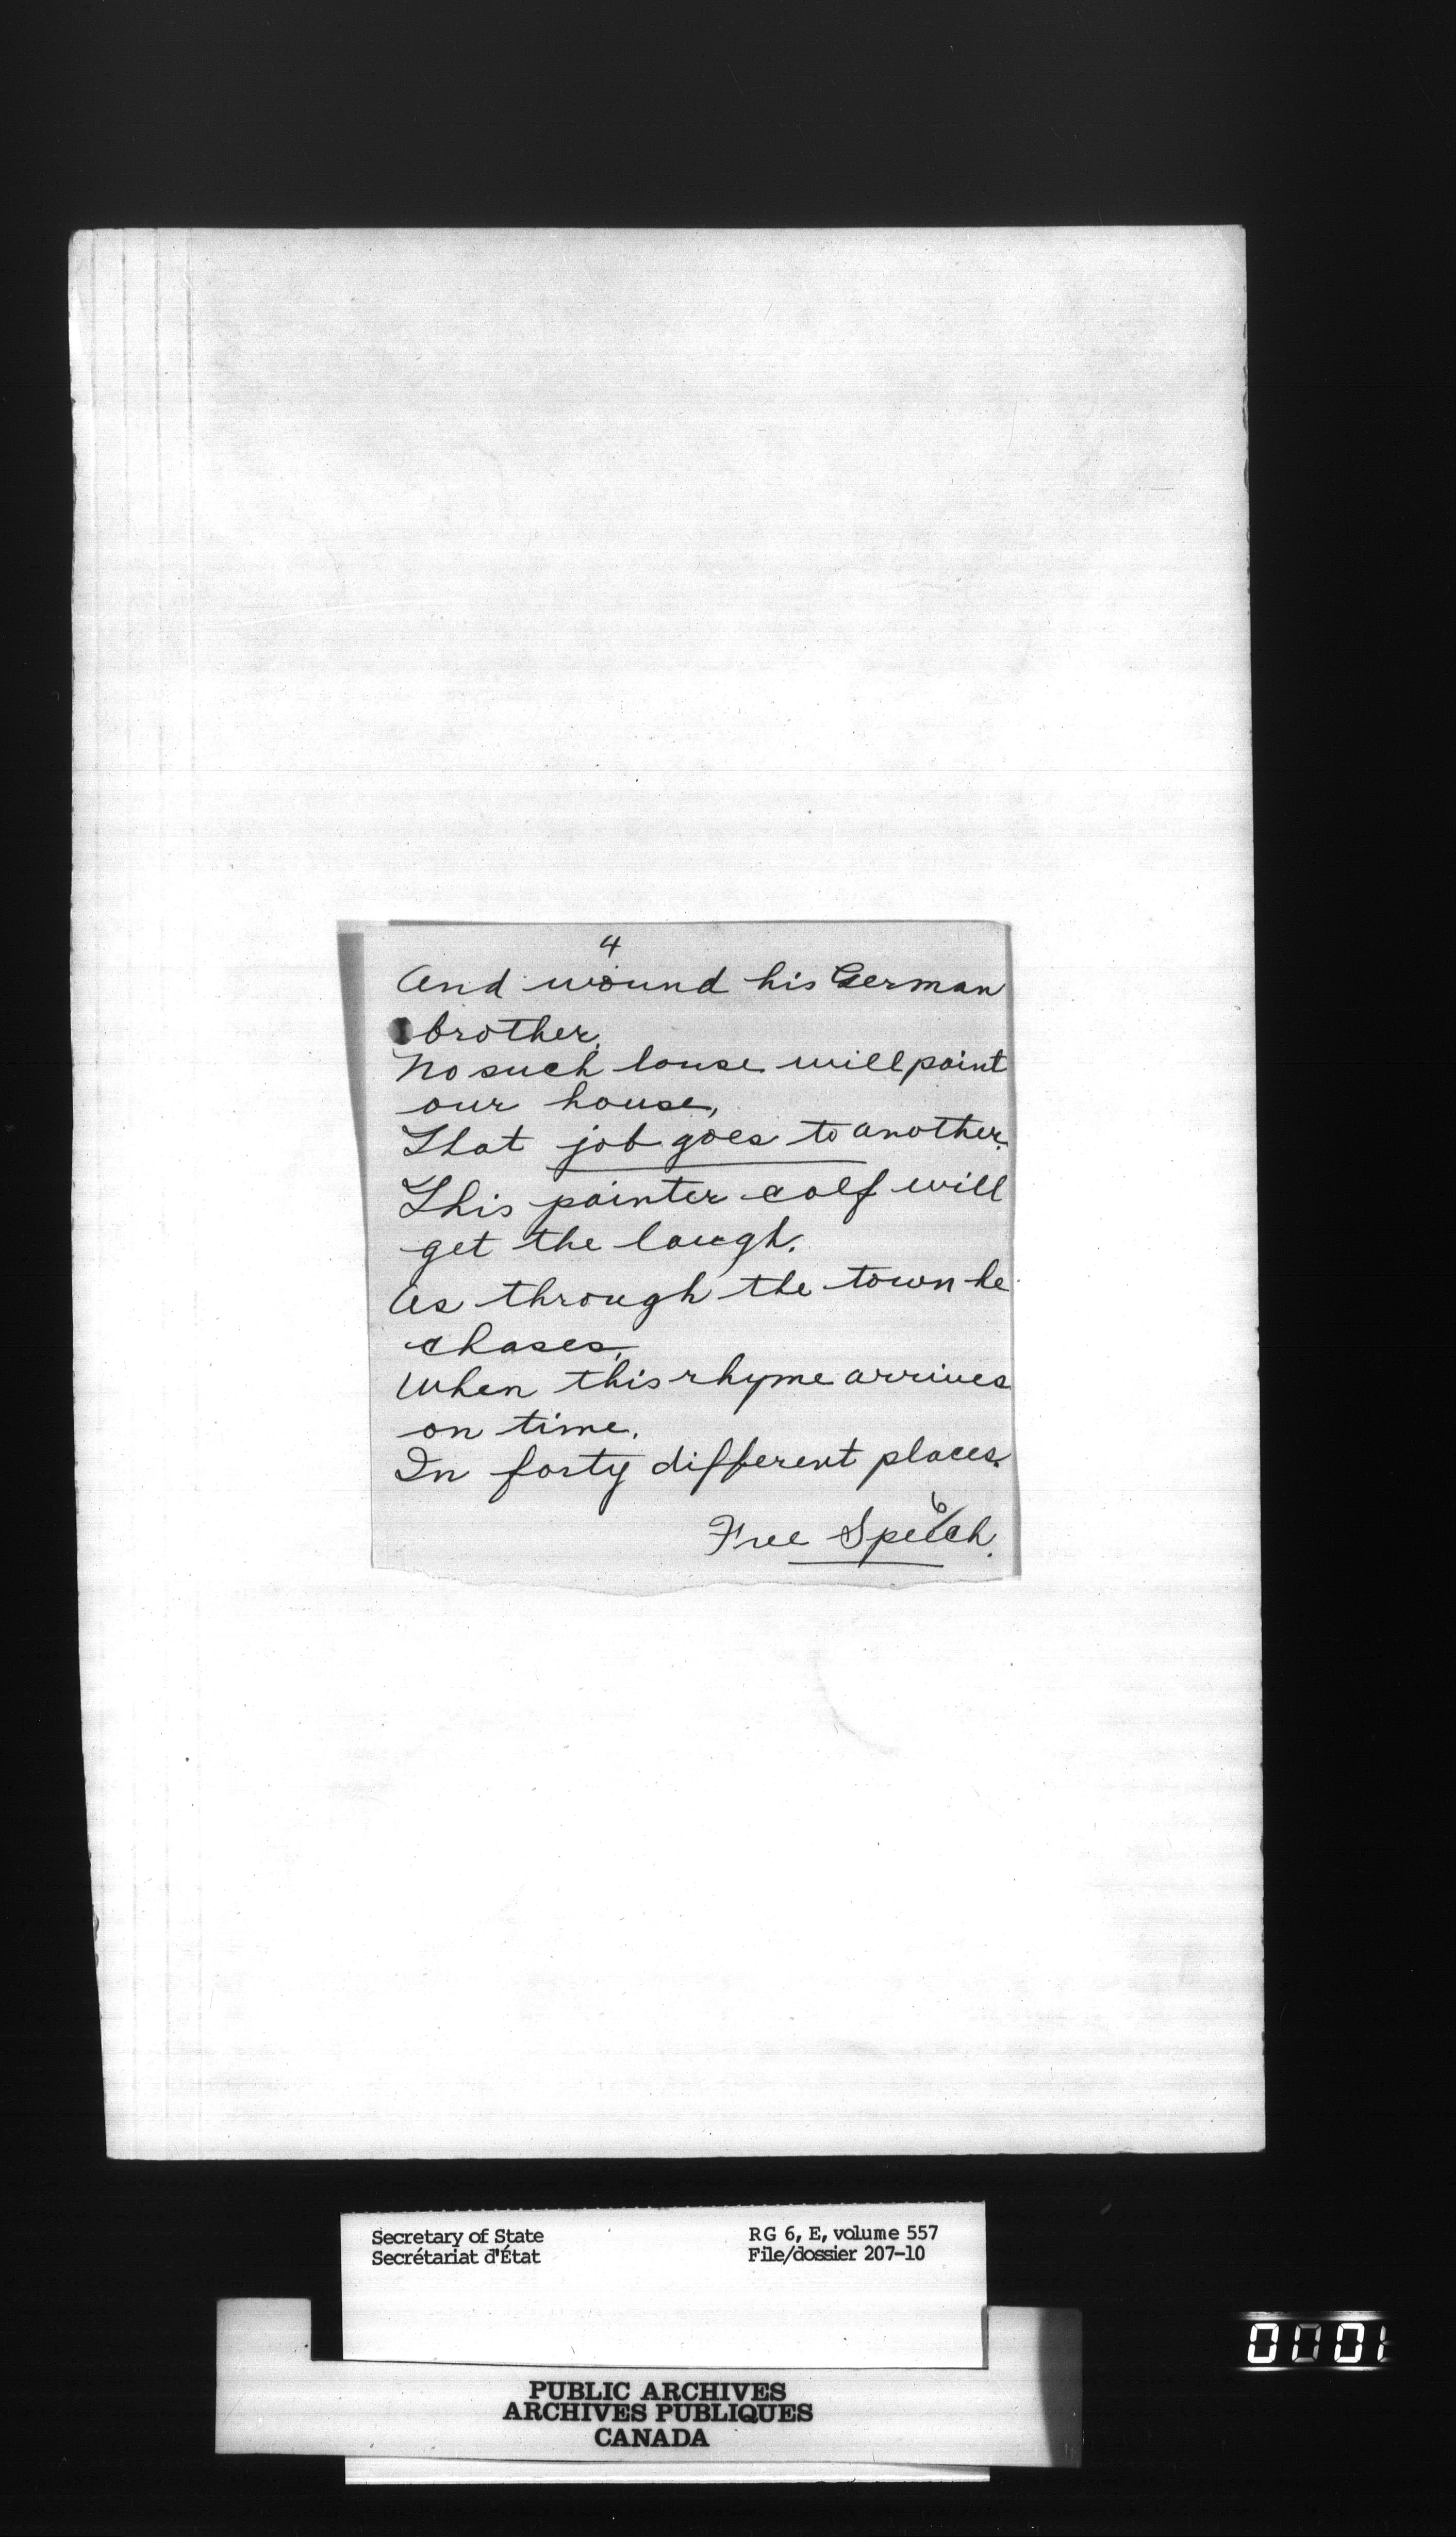 4
And wound his German
brother.
No such louse will paint
our house,
That job goes to another.
This painter calf will
get the laugh.
As through the town he
chases.
When this rhyme arrives
on time.
In forty different places.
Free Speech.
Secretary of State
Secrétariat d'État
RG 6, E, volume 557
File/dossier 207-10
PUBLIC ARCHIVES
ARCHIVES PUBLIQUES
CANADA